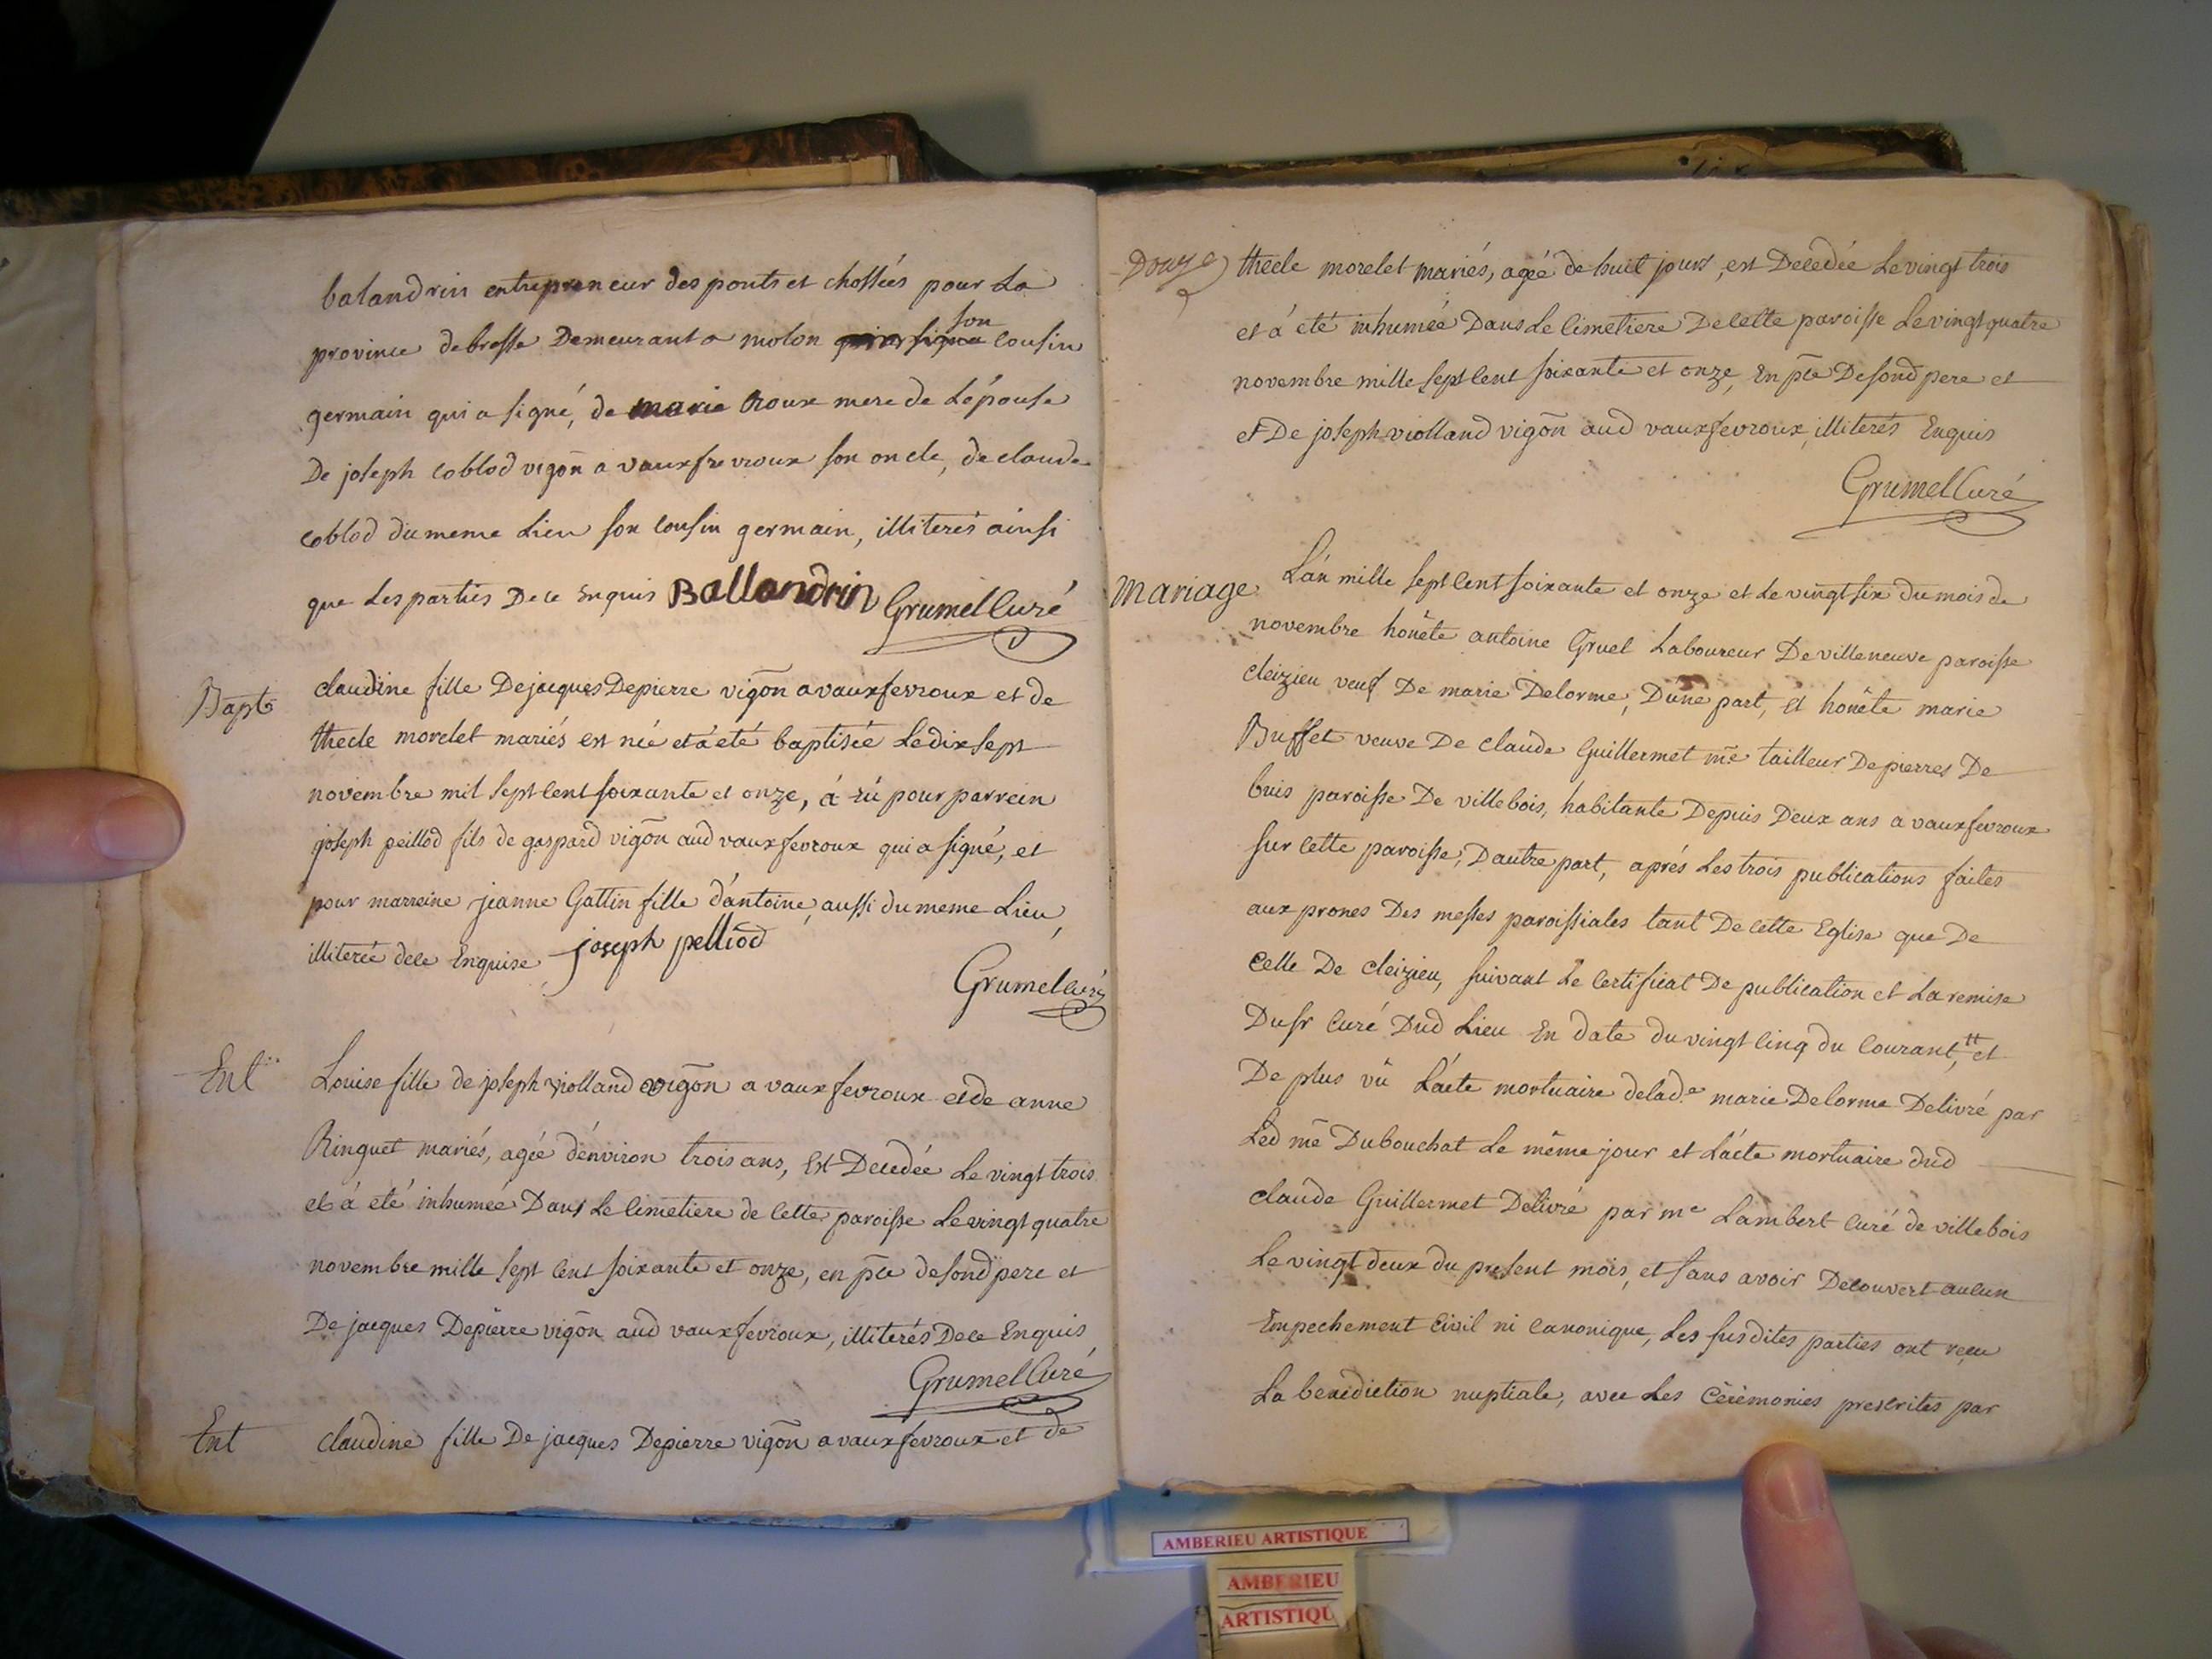 balandrin entrepreneur des ponts et chossées pour La
province de bresse Demeurant a molon son cousin
germain qui a signé, de marie Roux mere de L'épouse
De joseph coblod vigōn a vauxfevroux son oncle, de claude
coblod du meme Lieu son cousin germain, illiterés ainsi
que Les parties De ce Enquis Ballandrin Grumel Curé
Bapt claudine fille De jacques Depierre vigōn a vauxfevroux et de
thecle morelet mariés est née et a été baptisée Le dix sept
novembre mil sept cent soixante et onze, a eû pour parrein
joseph peillod fils de gaspard vigōn aud vauxfevroux qui a signé, et
pour marreine jeanne Gattin fille d'antoine, aussi du meme Lieu,
illiterée de ce Enquise joseph pelliod
Grumel curé
Ent Louise fille de joseph violland vigōn a vauxfevroux et de anne
Ringuet mariés, agée d'environ trois ans, Est Decedée Le vingt trois
et a été inhumée Dans Le Cimetiere de Cette paroisse Le vingt quatre
novembre mille sept cent soixante et onze, en pc̄e de sond pere et
De jacques Depierre vigōn aud vauxfevroux, illiterés De ce Enquis
Grumel Curé
Ent claudine fille De jacques Depierre vigōn a vauxfevroux et de
Douze thecle morelet mariés, agée de huit jours, est Decedée Le vingt trois
et a été inhumée Dans Le Cimetiere De Cette paroisse Le vingt quatre
novembre mille sept cent soixante et onze, En pc̄e De sond pere et
et De joseph violland vigōn aud vauxfevroux, illiterés Enquis
Grumel Curé
Mariage L'an mille sept cent soixante et onze et Le vingt six du mois de
novembre honête antoine Gruel Laboureur De villeneuve paroisse
cleizieu veuf De marie Delorme, D'une part, Et honête marie
Buffet veuve De claude Guillermet me tailleur De pierres De
buis paroisse De villebois, habitante Depuis Deux ans a vauxfevroux
sur Cette paroisse, D'autre part, aprés Les trois publications faites
aux prones Des messes paroissiales tant De Cette Eglise que De
Celle De cleizieu, suivant Le Certificat De publication et La remise
Du sr Curé Dud Lieu En date du vingt Cinq du Courant, et
De plus vû L'acte mortuaire de lad.e marie Delorme Delivré par
Led me Dubouchat Le même jour et L'acte mortuaire dud
claude Guillermet Delivré par me Lambert Curé de villebois
Le vingt deux du present mois, et sans avoir Decouvert aucun
Empechement Civil ni Canonique, Les susdites parties ont reçu
La benediction nuptiale, avec Les Cérémonies prescrites par
AMBERIEU ARTISTIQUE
AMBERIEU
ARTISTIQU